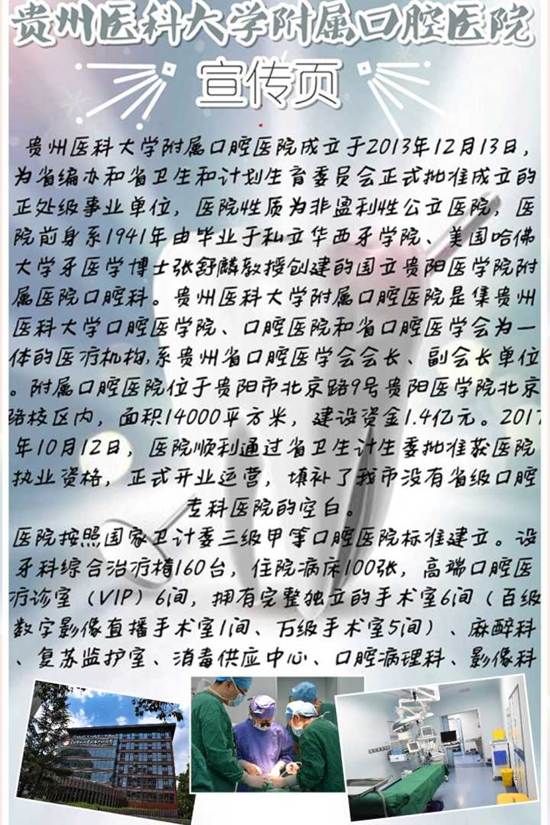 贵州医科大学附属口腔医院
宣传页
贵州医科大学附属口腔医院成立于2013年12月13日，
为省编办和省卫生和计划生育委员会正式批准成立的
正处级事业单位，医院性质为非盈利性公立医院，医
院前身系1941年由毕业于私立华西牙学院、美国哈佛
大学牙医学博士张舒麟教授创建的国立贵阳医学院附
属医院口腔科。贵州医科大学附属口腔医院是集贵州
医科大学口腔医学院、口腔医院和省口腔医学会为一
体的医疗机构,系贵州省口腔医学会会长、副会长单位
。附属口腔医院位于贵阳市北京路9号贵阳医学院北京
路校区内，面积14000平方米，建设资金1.4亿元。2017
年10月12日，医院顺利通过省卫生计生委批准获医院
执业资格，正式开业运营，填补了我市没有省级口腔
专科医院的空白。
医院按照国家卫计委三级甲等口腔医院标准建立。设
牙科综合治疗椅160台，住院病床100张，高端口腔医
疗诊室（VIP）6间，拥有完整独立的手术室6间（百级
数字影像直播手术室1间、万级手术室5间）、麻醉科
、复苏监护室、消毒供应中心、口腔病理科、影像科